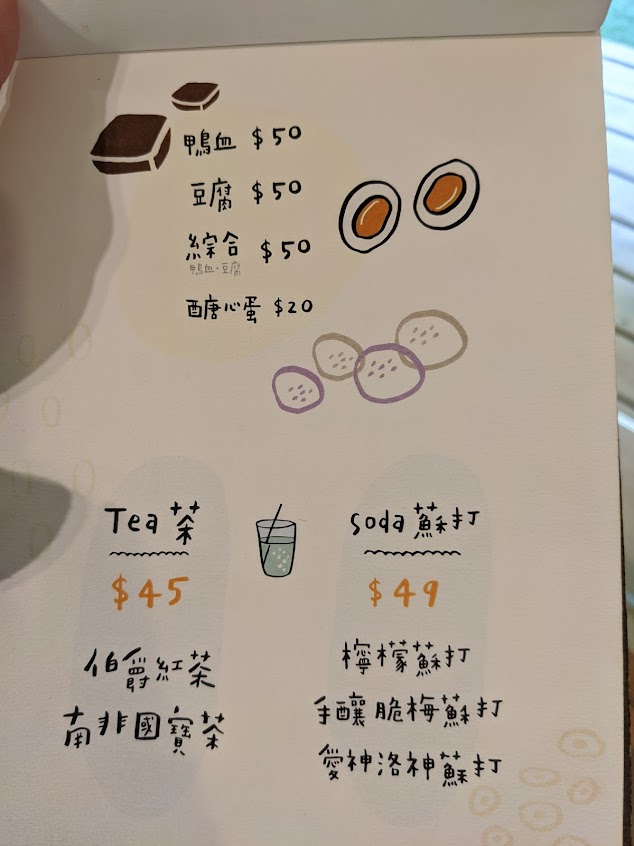 鴨血 $50
豆腐 $50
綜合 $50
鴨血·豆腐
醣心蛋 $20
Tea 茶
$45
伯爵紅茶
南非國寶茶
soda 蘇打
$49
檸檬蘇打
手釀脆梅蘇打
愛神洛神蘇打